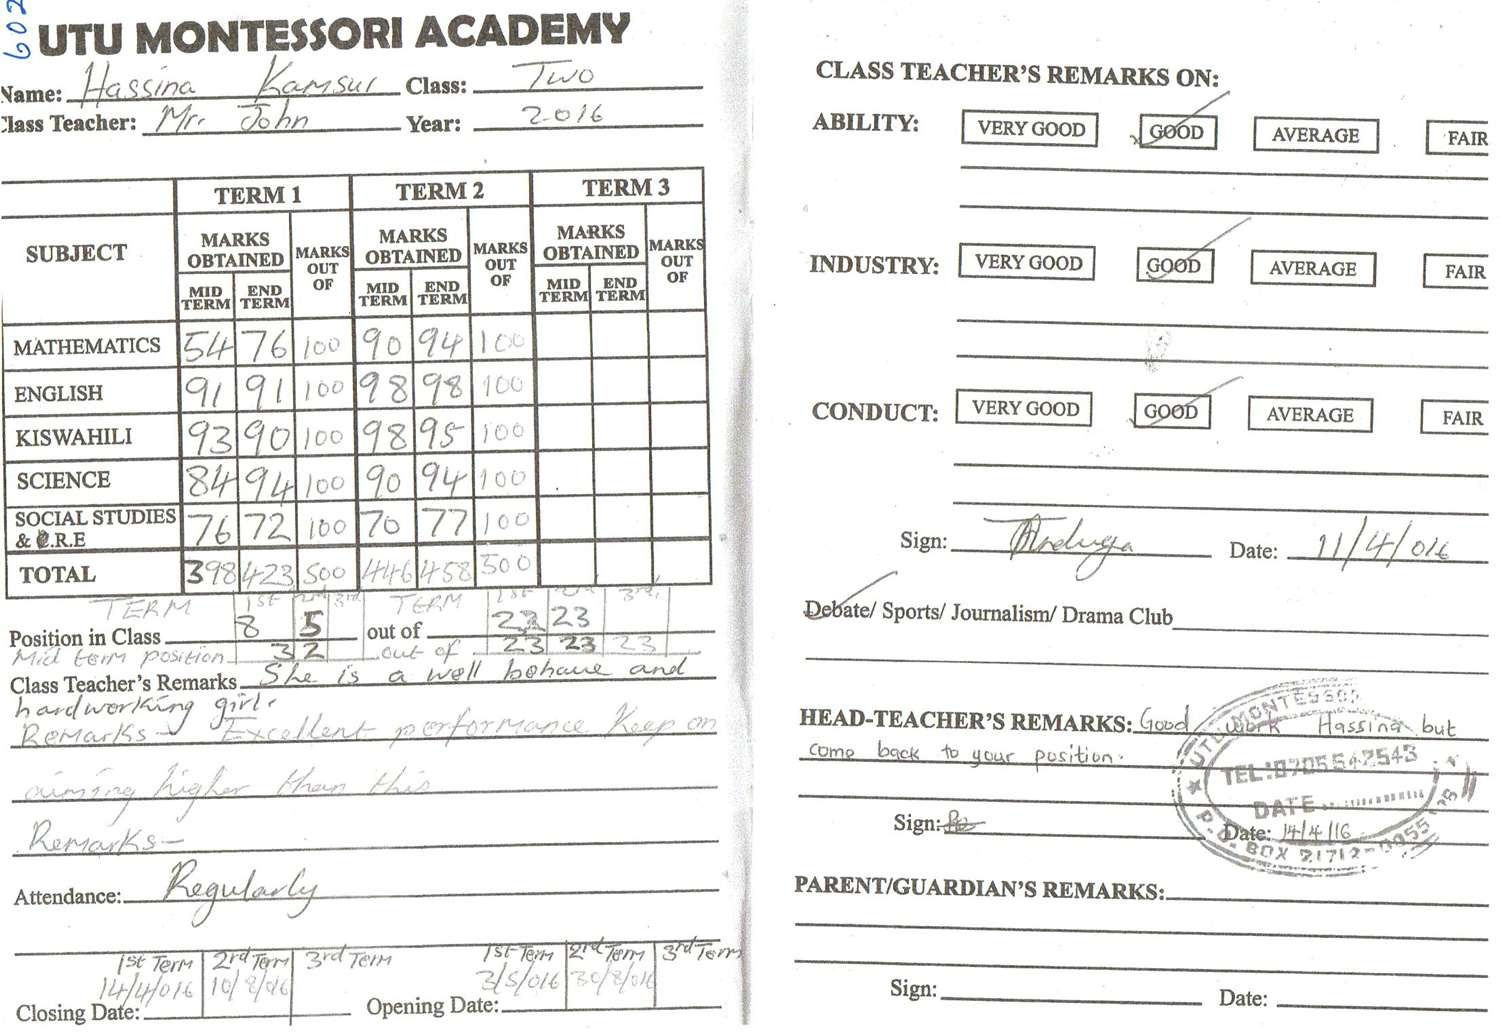 602
UTU MONTESSORI ACADEMY
Name: Hassina Kamsur Class: Two
Class Teacher: Mr. John Year: 2016
TERM 1 TERM 2 TERM 3
SUBJECT MARKS OBTAINED MARKS OUT OF MARKS OBTAINED MARKS OUT OF MARKS OBTAINED MARKS OUT OF
MID TERM END TERM MID TERM END TERM MID TERM END TERM
MATHEMATICS 54 76 100 90 94 100
ENGLISH 91 91 100 98 98 100
KISWAHILI 93 90 100 98 95 100
SCIENCE 84 94 100 90 94 100
SOCIAL STUDIES & C.R.E 76 72 100 70 77 100
TOTAL 398 423 500 446 458 500
TERM 1st 2nd 3rd TERM 1st 2nd 3rd
Position in Class 8 5 out of 23 23
Mid term position 3 2 out of 23 23 23
Class Teacher's Remarks She is a well behave and
hardworking girl.
Remarks - Excellent performance Keep on
aiming higher than this
Remarks -
Attendance: Regularly
1st Term 2nd Term 3rd Term 1st Term 2nd Term 3rd Term
14/4/016 10/8/016 3/5/016 30/8/016
Closing Date: Opening Date:
CLASS TEACHER'S REMARKS ON:
ABILITY: VERY GOOD GOOD AVERAGE FAIR
INDUSTRY: VERY GOOD GOOD AVERAGE FAIR
CONDUCT: VERY GOOD GOOD AVERAGE FAIR
Sign: Date: 11/4/016
Debate/ Sports/ Journalism/ Drama Club
HEAD-TEACHER'S REMARKS: Good work Hassina but
come back to your position.
UTU MONTESSORI
TEL: 0705547543
DATE
P.O. BOX 21712-
Sign: Date: 14/4/16
PARENT/GUARDIAN'S REMARKS:
Sign: Date: